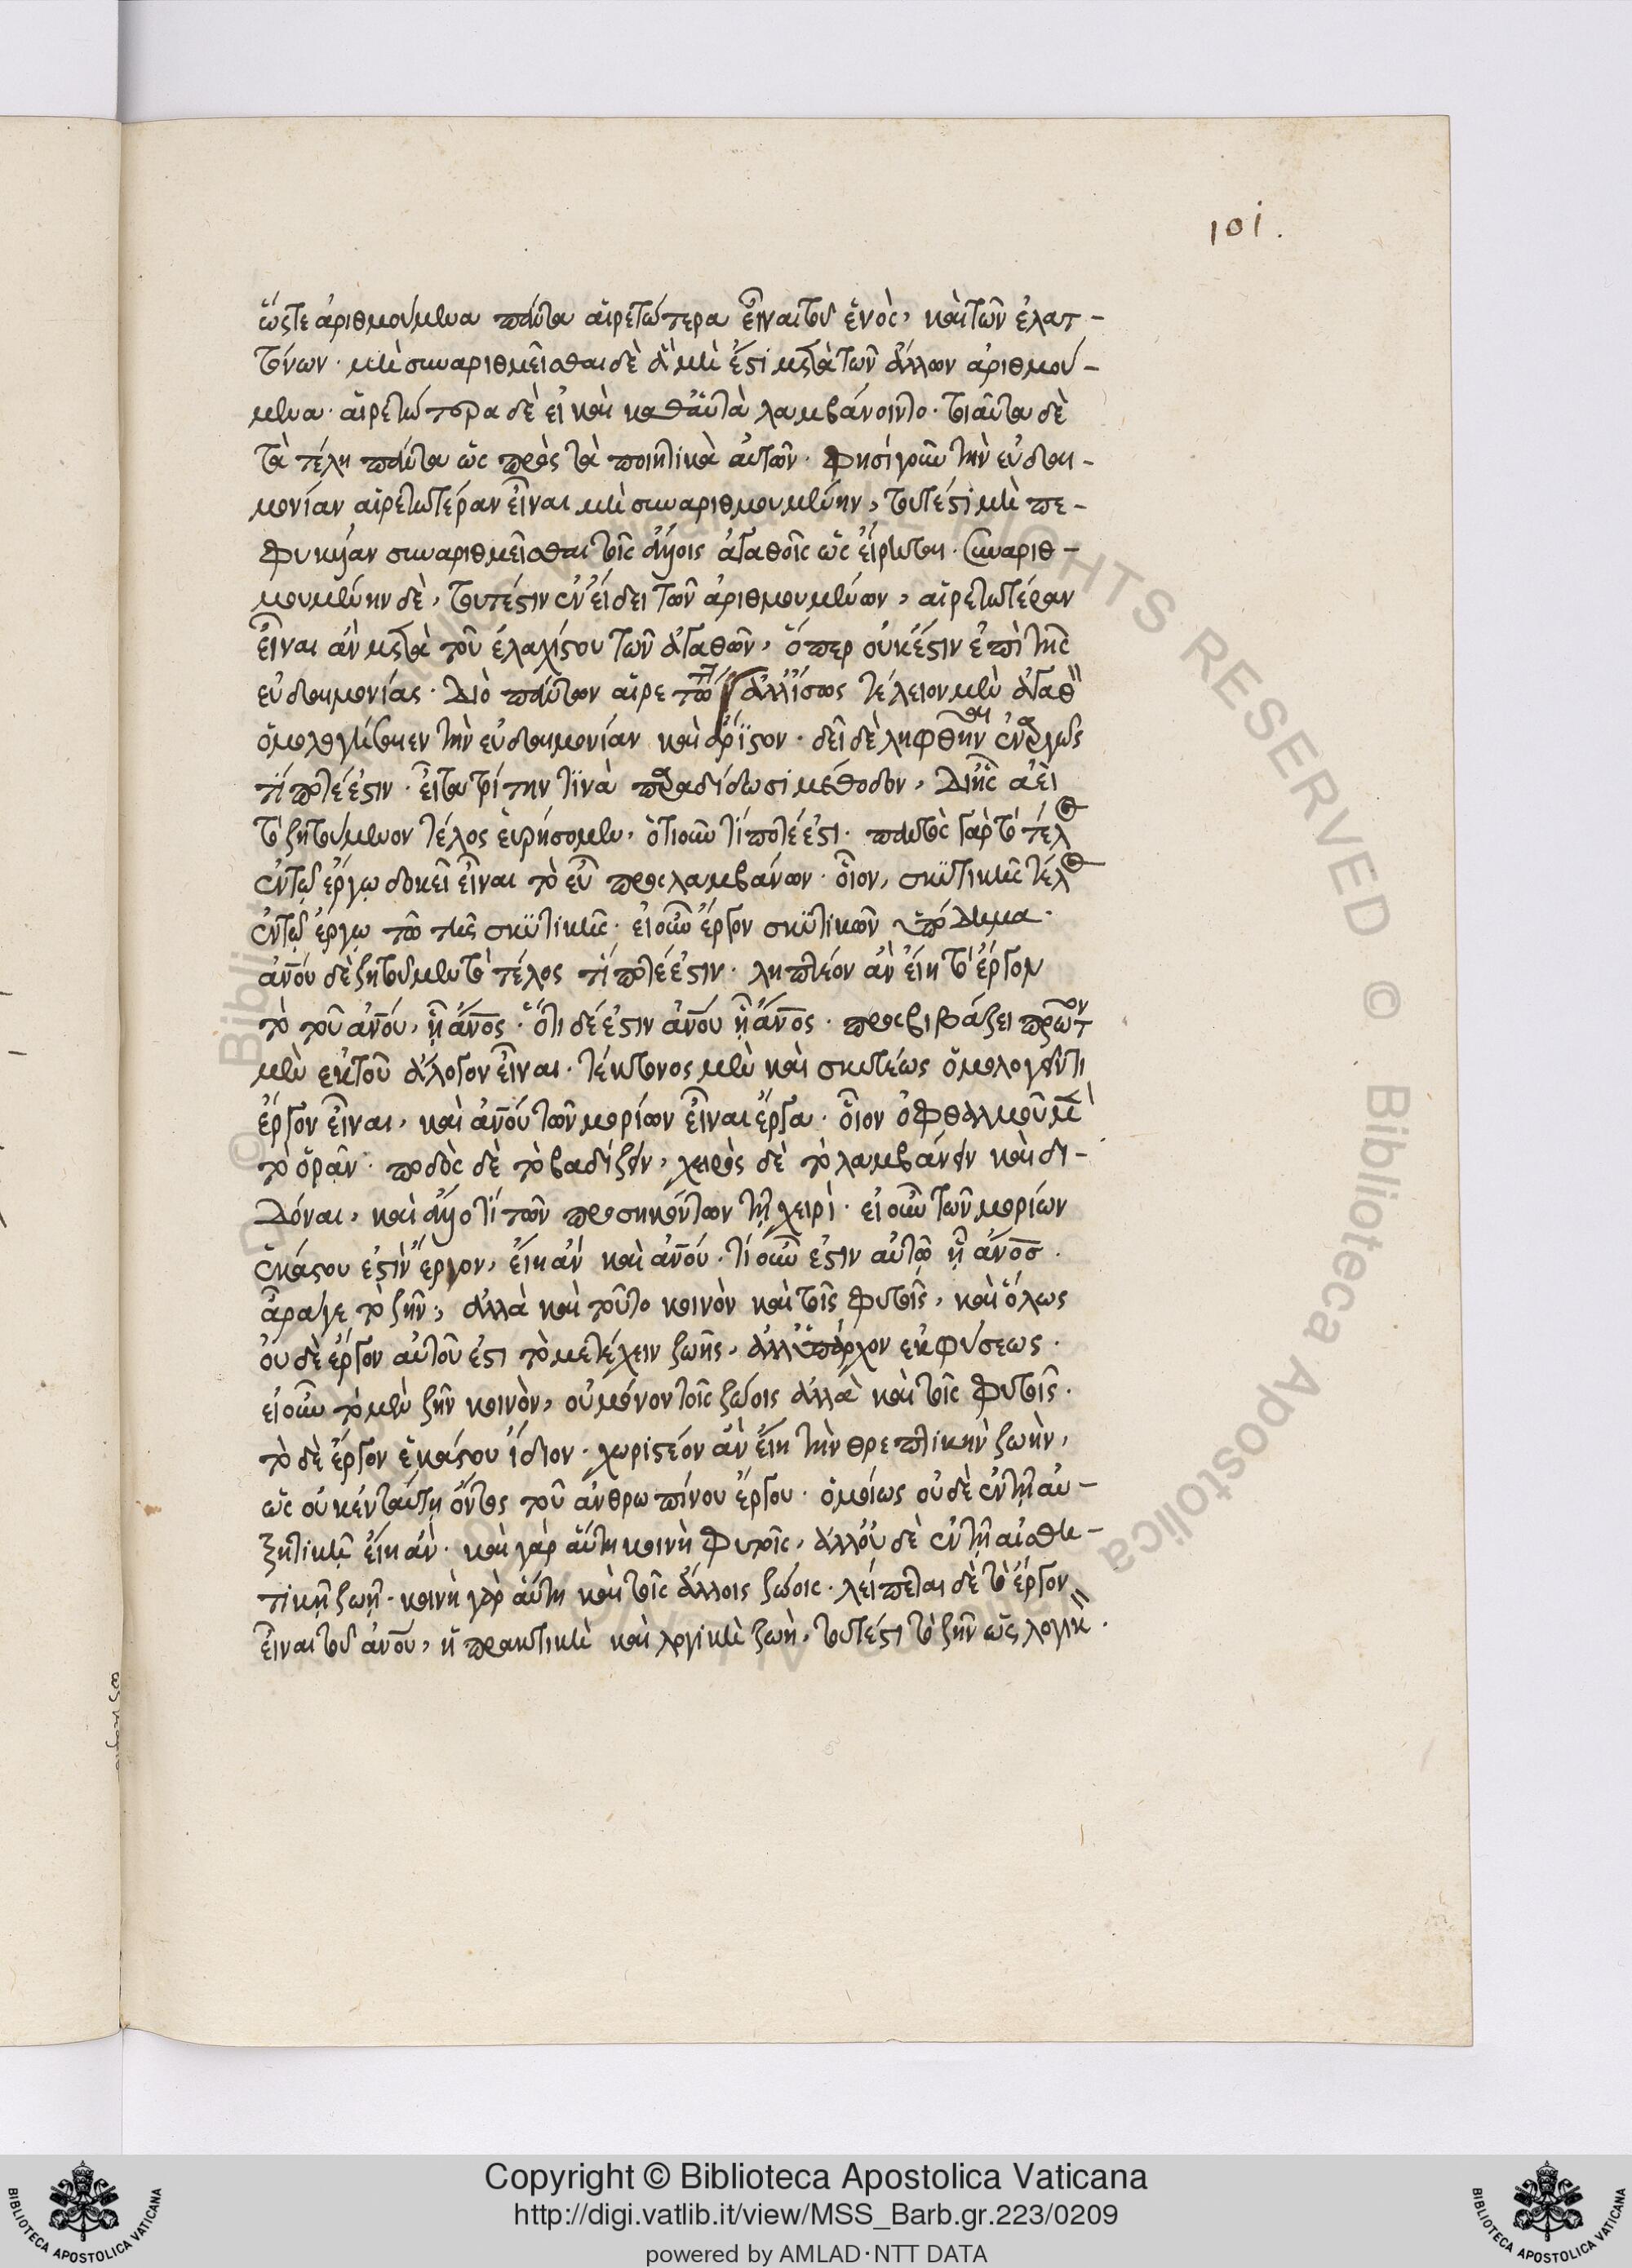 101.
ὥστε ἀριθμούμενα πάντα αἱρετώτερα εἶναι τοῦ ἑνὸς, καὶ τῶν ἐλατ-
τόνων. μὴ συναριθμεῖσθαι δὲ ἃ μή ἐστι μετὰ τῶν ἄλλων ἀριθμού-
μενα. αἱρετώτερα δὲ εἰ καὶ καθ' αὑτὰ λαμβάνοιντο. τοιαῦτα δὲ
τὰ τέλη πάντα ὡς πρὸς τὰ ποιητικὰ αὐτῶν. φησὶ γοῦν τὴν εὐδαι-
μονίαν αἱρετωτέραν εἶναι μὴ συναριθμουμένην, τουτέστι μὴ πε-
φυκυῖαν συναριθμεῖσθαι τοῖς ἄλλοις ἀγαθοῖς ὡς εἴρηται. συναριθ-
μουμένην δὲ, τουτέστιν ἐν εἴδει τῶν ἀριθμουμένων, αἱρετωτέραν
εἶναι ἂν μετὰ τοῦ ἐλαχίστου τῶν ἀγαθῶν, ὅπερ οὐκέστιν ἐπὶ τῆς
εὐδαιμονίας. Διὸ πάντων αἱρετω ἀλλ' ἴσως τέλειον μὲν ἀγαθὸν
ὁμολογεῖται εἶναι τὴν εὐδαιμονίαν καὶ ἄριστον. δεῖ δὲ ληφθῆναι ἐναργῶς
τί ποτέ ἐστιν. εἶτα τρίτην τινὰ παραδίδωσι μέθοδον, Δι' ἧς ἀεὶ
τὸ ζητούμενον τέλος εὑρήσομεν, ὅτι οὖν τί ποτέ ἐστι. παντὸς γὰρ τὸ τέλος
ἐν τῷ ἔργῳ δοκεῖ εἶναι τὸ εὖ προσλαμβάνων. οἷον, σκυτικῆς τέλος
ἐν τῷ ἔργῳ τῷ τῆς σκυτικῆς. εἰ οὖν ἔργον σκυτικῶν ὑπόδημα.
ἀνου δὲ ζητοῦμεν τὸ τέλος τί ποτέ ἐστιν. ληπτέον ἂν εἴη τὸ ἔργον
τὸ τοῦ ἀνου, ᾗ ἄνος. ὅτι δέ ἐστιν ἀνου ᾗ ἄνος. προσβιβάζει πρῶτον
μὲν ἐκ τοῦ ἄλογον εἶναι. τέκτονος μὲν καὶ σκυτέως ὁμολογεῖν τι
ἔργον εἶναι, καὶ ἀνου τῶν μορίων εἶναι ἔργα. οἷον ὀφθαλμοῦ μὲν
τὸ ὁρᾶν. ποδὸς δὲ τὸ βαδίζειν, χειρὸς δὲ τὸ λαμβάνειν καὶ δι-
δόναι, καὶ ἄλλο τί τῶν προσηκόντων τῇ χειρί. εἰ οὖν τῶν μορίων
ἑκάστου ἐστὶν ἔργον, εἴη ἂν καὶ ἀνου. τί οὖν ἐστιν αὐτῷ ᾗ ἄνος.
ἆρα γε τὸ ζῆν, ἀλλὰ καὶ τοῦτο κοινὸν καὶ τοῖς φυτοῖς, καὶ ὅλως
οὐδὲ ἔργον αὐτοῦ ἐστι τὸ μετέχειν ζωῆς, ἀλλ' ὑπάρχον ἐκ φύσεως.
εἰ οὖν τὸ μὲν ζῆν κοινὸν, οὐ μόνον τοῖς ζώοις ἀλλὰ καὶ τοῖς φυτοῖς.
τὸ δὲ ἔργον ἑκάστου ἴδιον. χωριστέον ἂν εἴη τὴν θρεπτικὴν ζωὴν,
ὡς οὐκ ἐν ταύτῃ ὄντος τοῦ ἀνθρωπίνου ἔργου. ὁμοίως οὐδὲ ἐν τῇ αὐ-
ξητικῇ εἴη ἄν. καὶ γὰρ αὕτη κοινὴ φυτοῖς, ἀλλ' οὐδὲ ἐν τῇ αἰσθη-
τικῇ ζωῇ. κοινὴ γὰρ αὕτη καὶ τοῖς ἄλλοις ζώοις. λείπεται δὲ τὸ ἔργον
εἶναι τοῦ ἀνου, ἡ πρακτικὴ καὶ λογικὴ ζωὴ, τουτέστι τὸ ζῆν ὡς λογικ.
Copyright © Biblioteca Apostolica Vaticana
http://digi.vatlib.it/view/MSS_Barb.gr.223/0209
powered by AMLAD·NTT DATA